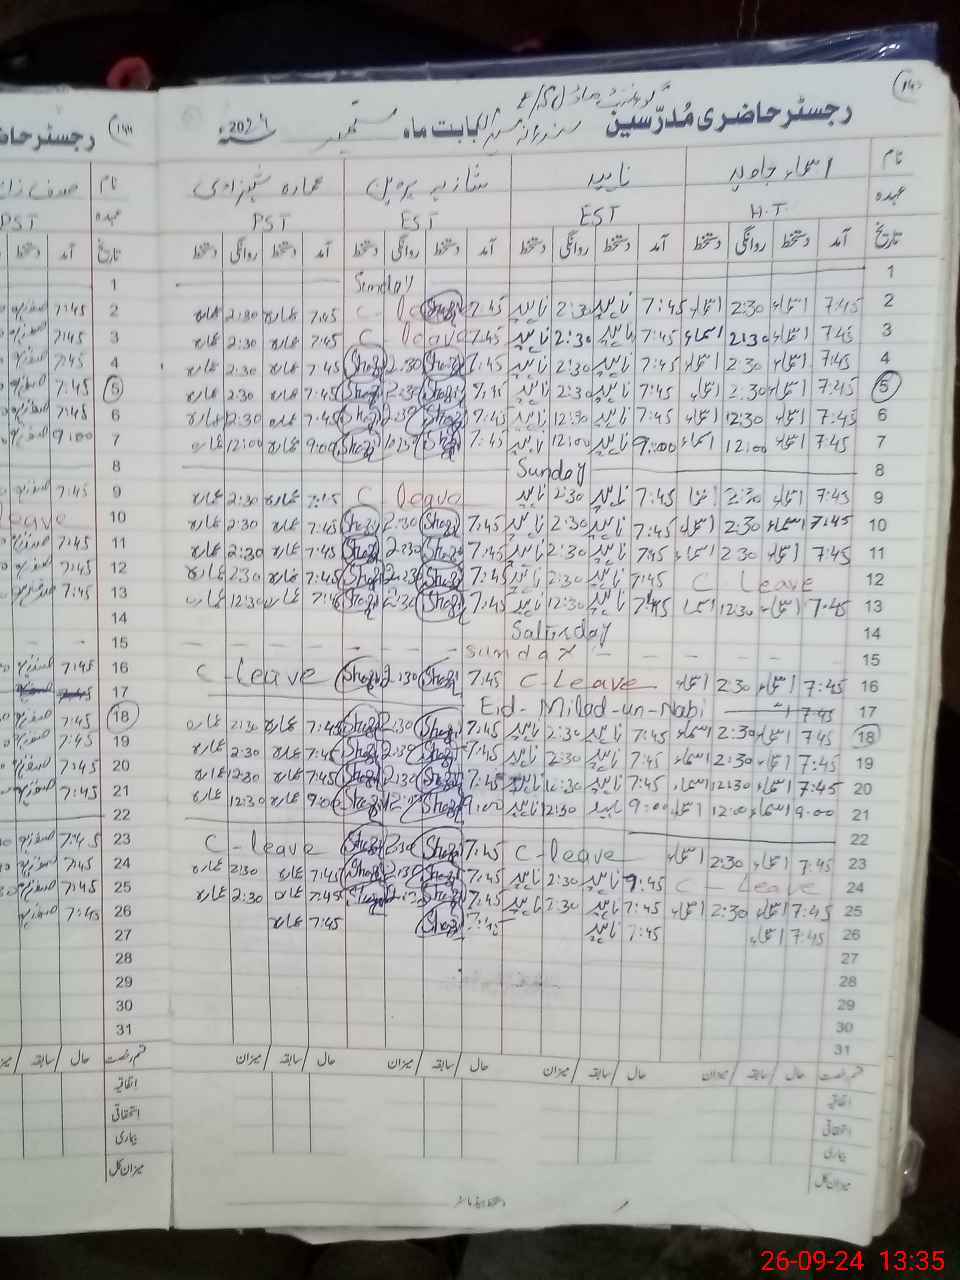 رجسٹر حاضری مُدرّسین بابت ماہ ستمبر 2024ء
رجسٹر حاضری
نام اسماء جاوید ناہید شازیہ پروین عمارہ شہزادی نام
عہدہ H.T. EST EST PST عہدہ PST
تاریخ آمد دستخط روانگی دستخط آمد دستخط روانگی دستخط آمد دستخط روانگی دستخط آمد دستخط روانگی دستخط تاریخ آمد دستخط
1 Sunday 1
2 7:45 اسماء 2:30 اسماء 7:45 ناہید 2:30 ناہید 7:45 Shazi C- 7:45 عمارہ 2:30 عمارہ 2 7:45
3 7:45 اسماء 2:30 اسماء 7:45 ناہید 2:30 ناہید 7:45 C leave 7:45 عمارہ 2:30 عمارہ 3 7:45
4 7:45 اسماء 2:30 اسماء 7:45 ناہید 2:30 ناہید 7:45 Shazi 2:30 Shazi 7:45 عمارہ 2:30 عمارہ 4 7:45
5 7:45 اسماء 2:30 اسماء 7:45 ناہید 2:30 ناہید 7:45 Shazi 2:30 Shazi 7:45 عمارہ 2:30 عمارہ 5 7:45
6 7:45 اسماء 12:30 اسماء 7:45 ناہید 12:30 ناہید 7:45 Shazi Shazi 7:45 عمارہ 12:30 عمارہ 6 7:45
7 7:45 اسماء 12:00 اسماء 9:00 ناہید 12:00 ناہید 7:45 Shazi Shazi 9:00 عمارہ 12:00 عمارہ 7 9:00
8 Sunday 8
9 7:45 اسماء 2:30 اسماء 7:45 ناہید 2:30 ناہید C- leave عمارہ 2:30 عمارہ 9 7:45
10 7:45 اسماء 2:30 اسماء 7:45 ناہید 2:30 ناہید 7:45 Shazi 2:30 Shazi 7:45 عمارہ 2:30 عمارہ 10 leave
11 7:45 اسماء 2:30 اسماء 7:45 ناہید 2:30 ناہید 7:45 Shazi 2:30 Shazi 7:45 عمارہ 2:30 عمارہ 11 7:45
12 C Leave 7:45 ناہید 2:30 ناہید 7:45 Shazi 2:30 Shazi 7:45 عمارہ 2:30 عمارہ 12 7:45
13 7:45 اسماء 12:30 اسماء 7:45 ناہید 12:30 ناہید 7:45 Shazi Shazi 7:45 عمارہ 12:30 عمارہ 13 7:45
14 Saturday 14
15 Sunday 15
16 7:45 اسماء 2:30 اسماء C-Leave 7:45 Shazi 2:30 Shazi C-Leave 16 7:45
17 7:45 Eid-Milad-un-Nabi 17
18 7:45 اسماء 2:30 اسماء 7:45 ناہید 2:30 ناہید 7:45 Shazi 2:30 Shazi 7:45 عمارہ 2:30 عمارہ 18 7:45
19 7:45 اسماء 2:30 اسماء 7:45 ناہید 2:30 ناہید 7:45 Shazi 2:30 Shazi 7:45 عمارہ 2:30 عمارہ 19 7:45
20 7:45 اسماء 12:30 اسماء 7:45 ناہید 12:30 ناہید 7:45 Shazi Shazi 7:45 عمارہ 12:30 عمارہ 20 7:45
21 9:00 اسماء 12:00 اسماء 9:00 ناہید 12:30 ناہید 9:00 Shazi Shazi 9:00 عمارہ 12:30 عمارہ 21 7:45
22 22
23 7:45 اسماء 2:30 اسماء C-leave 7:45 Shazi 2:30 Shazi C-leave 23 7:45
24 C-Leave 7:45 ناہید 2:30 ناہید 7:45 Shazi 2:30 Shazi 7:45 عمارہ 2:30 عمارہ 24 7:45
25 7:45 اسماء 2:30 اسماء 7:45 ناہید 2:30 ناہید 7:45 Shazi Shazi 7:45 عمارہ 2:30 عمارہ 25 7:45
26 7:45 اسماء 7:45 ناہید Shazi 7:45 عمارہ 26 7:45
27 27
28 28
29 29
30 30
31 31
قسم رخصت حال / سابقہ / میزان حال / سابقہ / میزان حال / سابقہ / میزان حال / سابقہ / میزان قسم رخصت حال / سابقہ
اتفاقیہ اتفاقیہ
استحقاقی استحقاقی
بیماری بیماری
میزان کل میزان کل
دستخط ہیڈ ماسٹر
26-09-24 13:35